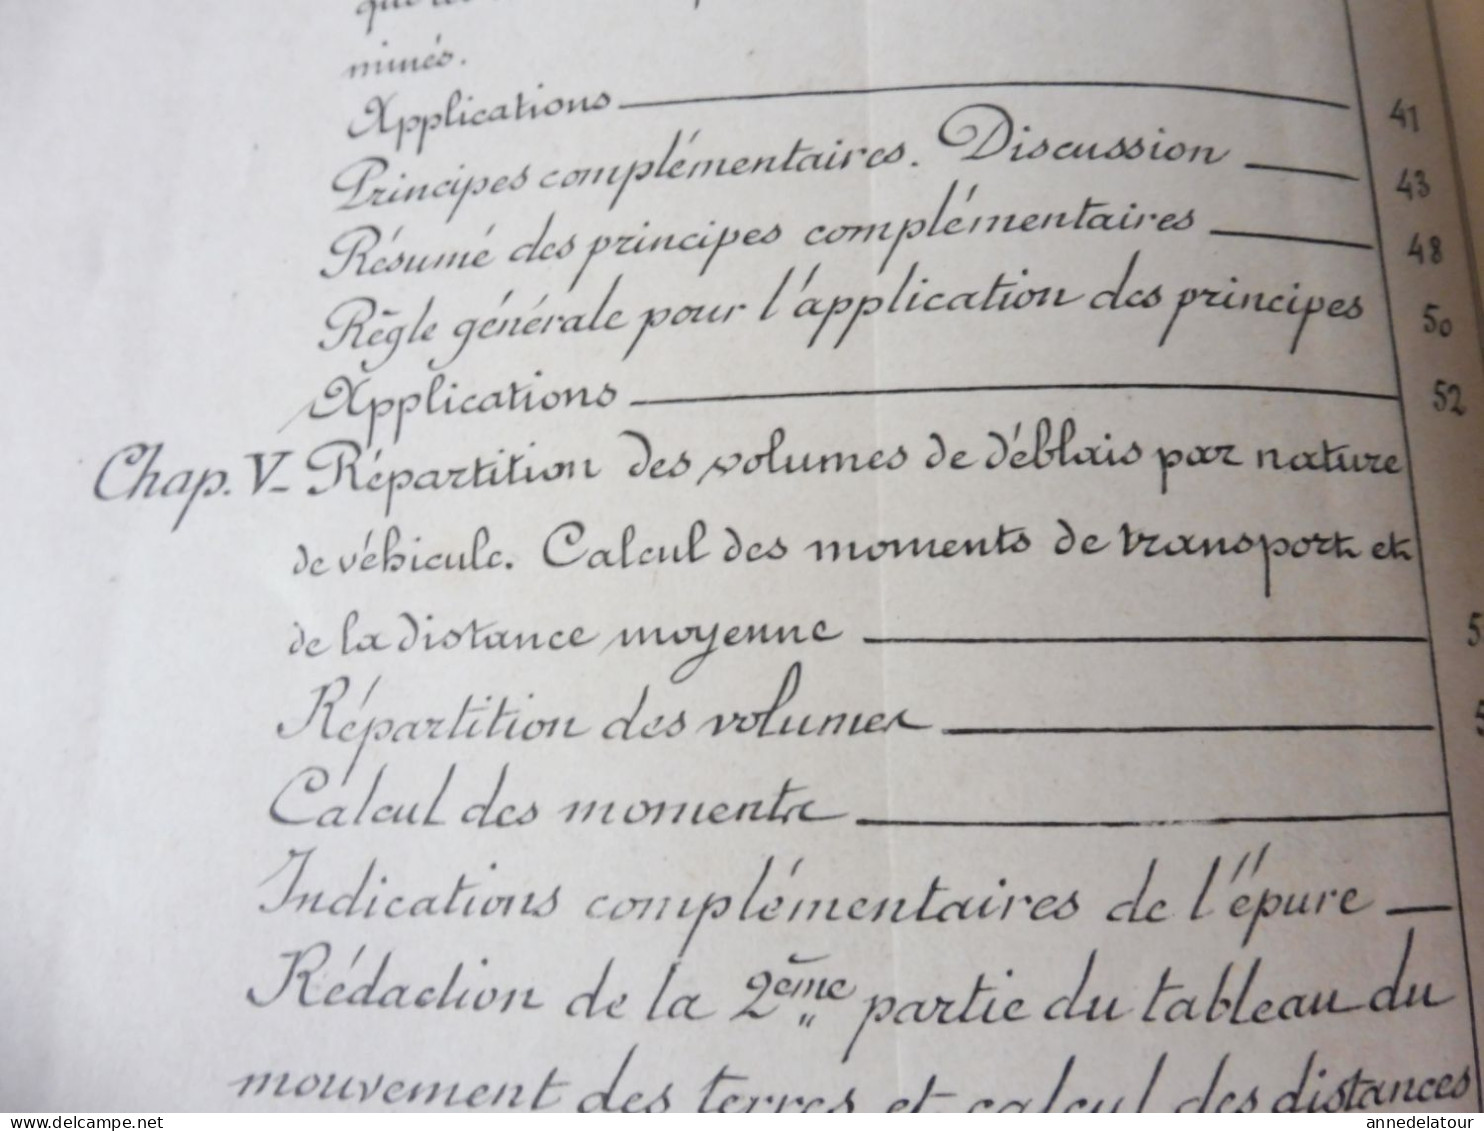 minés.
Applications 41
Principes complémentaires. Discussion 43
Résumé des principes complémentaires 48
Règle générale pour l'application des principes 50
Applications 52
Chap. V_ Répartition des volumes de déblais par nature
de véhicule. Calcul des moments de transport et
de la distance moyenne 5
Répartition des volumes 5
Calcul des moments
Indications complémentaires de l'épure
Rédaction de la 2ème partie du tableau du
mouvement des terres et calcul des distances
www.delcampe.net
annedelatour